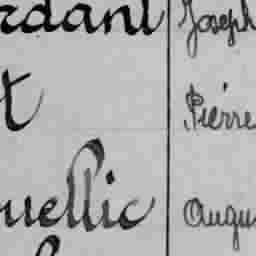 rdant Joseph
t Pierre
uellic Augu